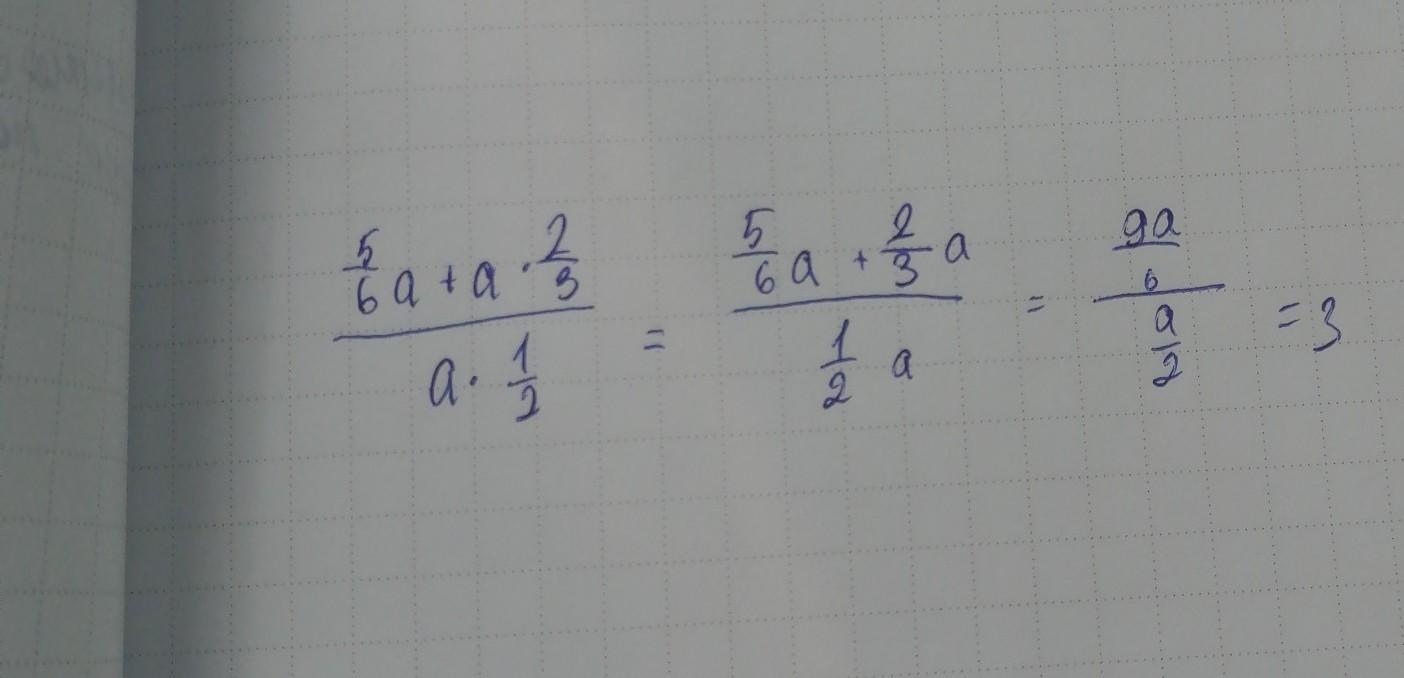 5/6 a + a · 2/3 / a · 1/2 = 5/6 a + 2/3 a / 1/2 a = 9a/6 / a/2 = 3